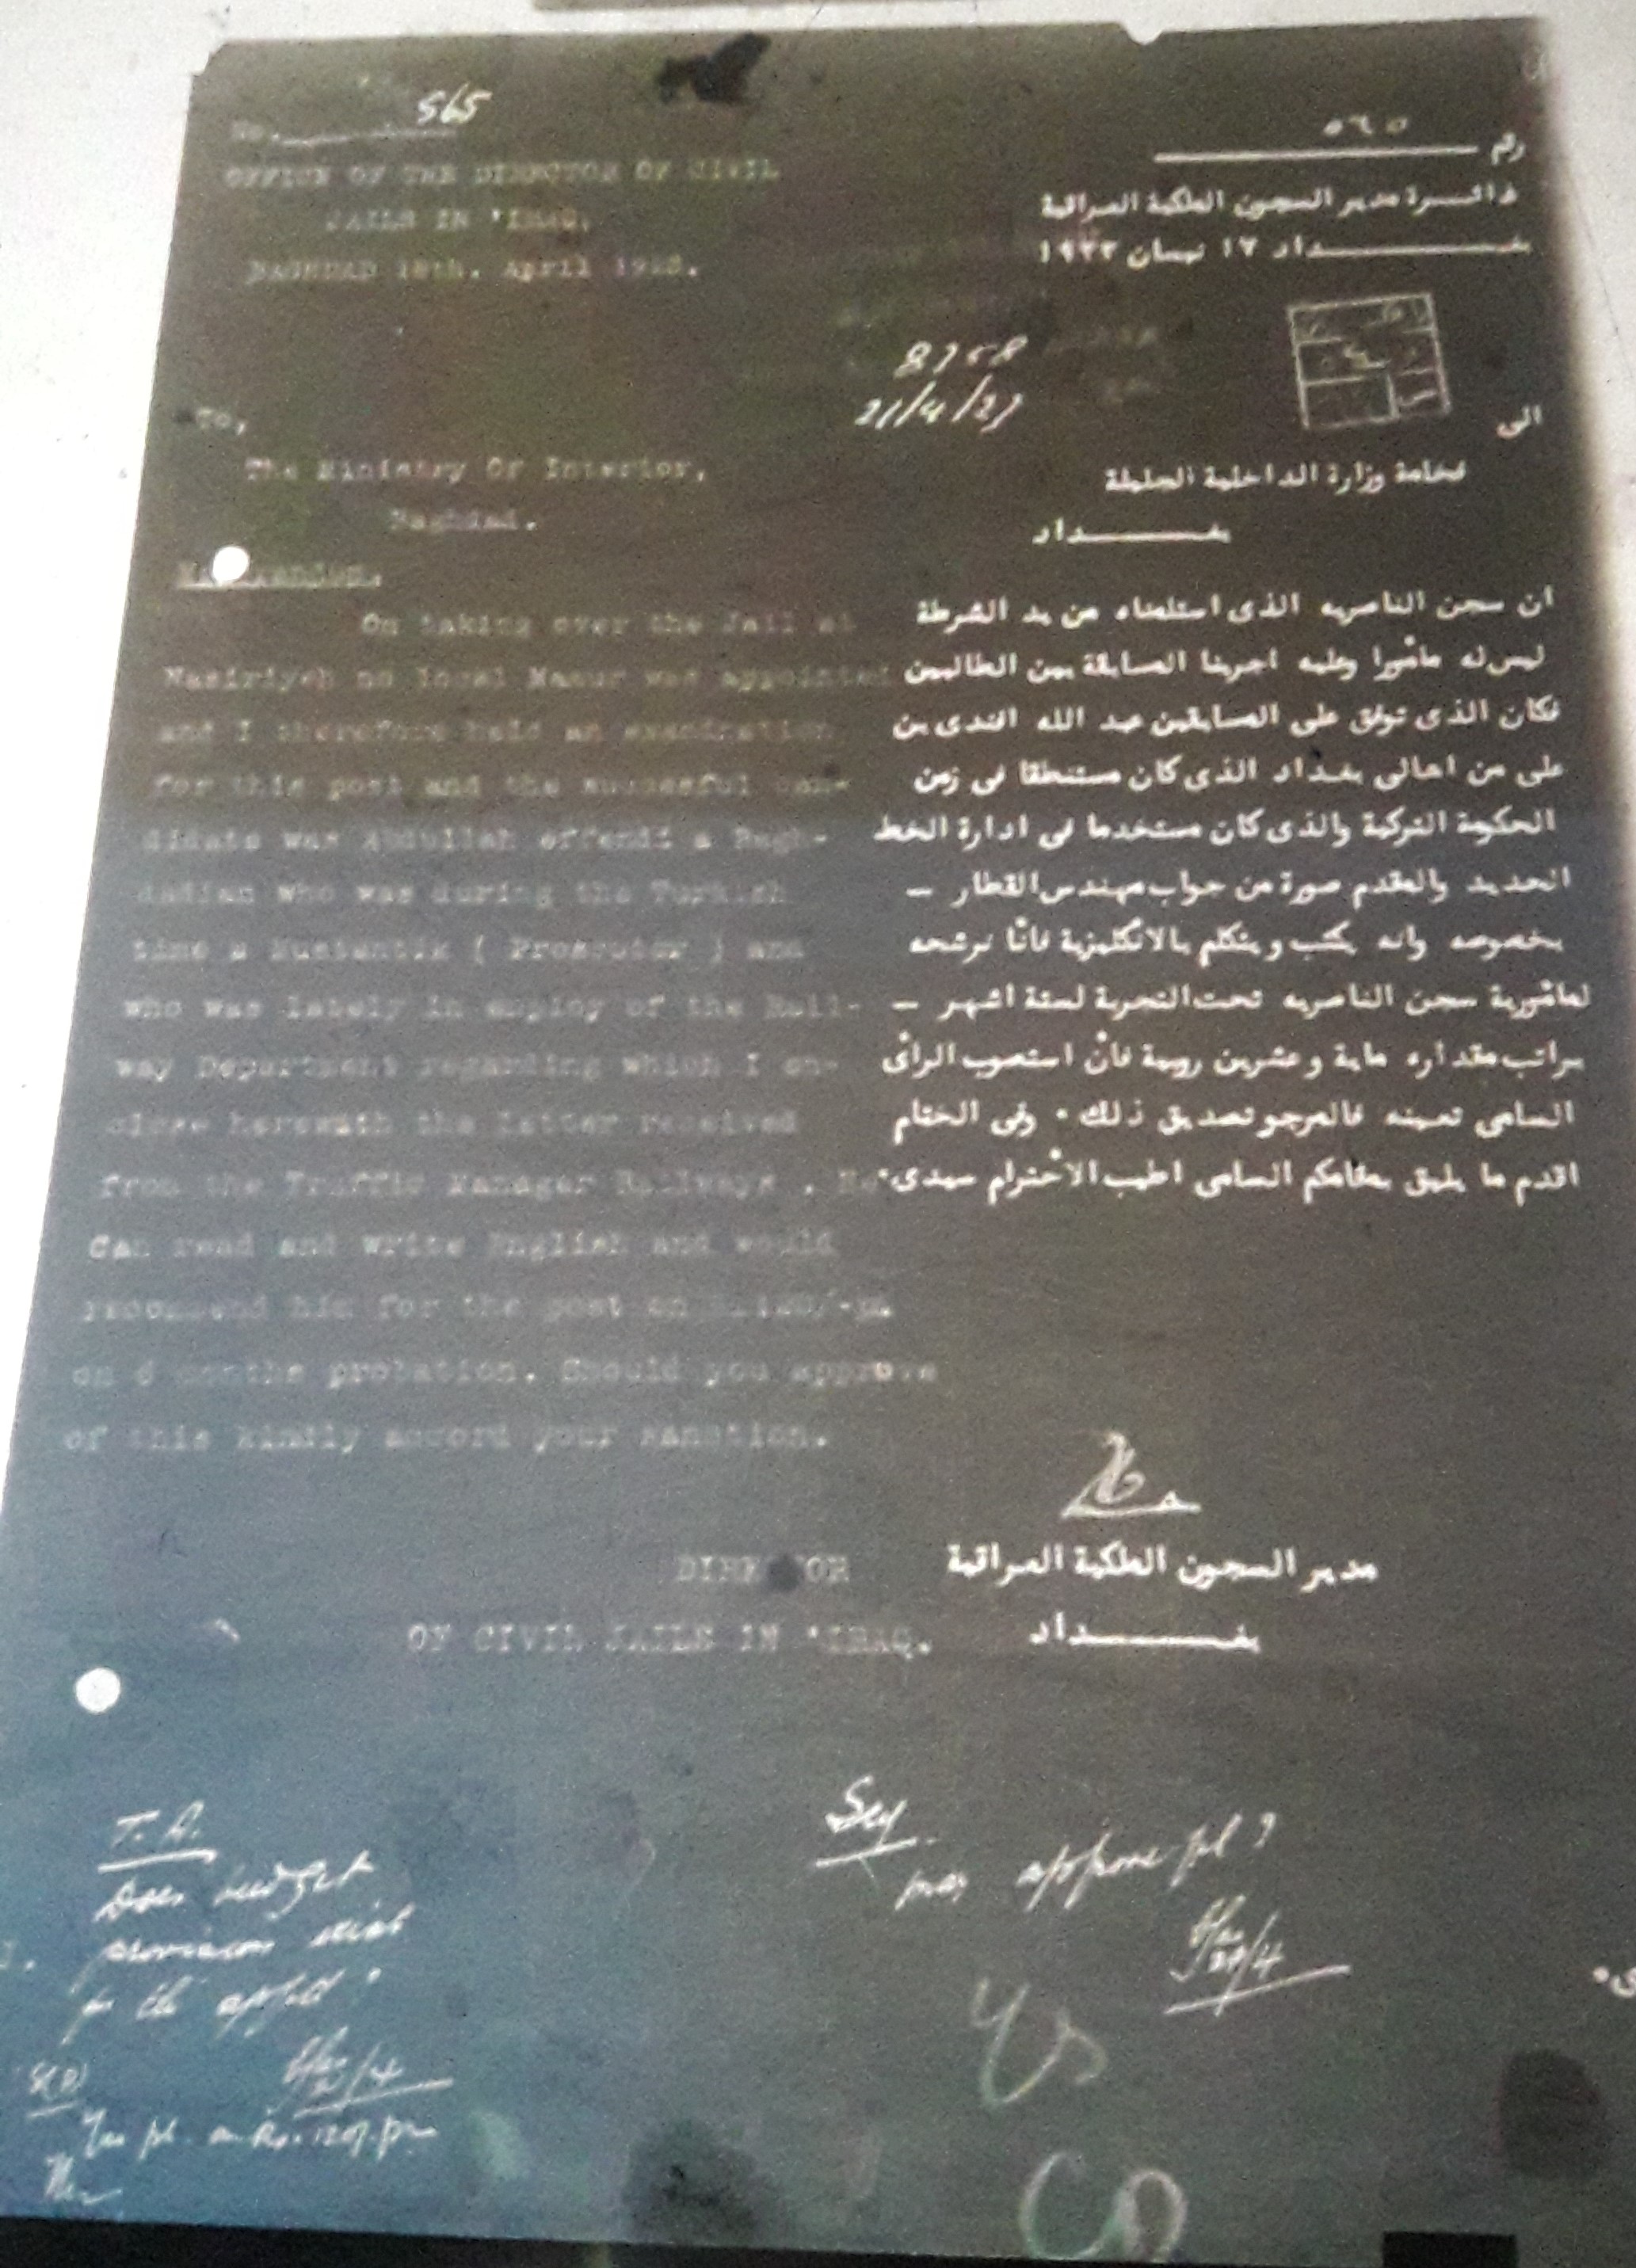 No. 565
OFFICE OF THE DIRECTOR OF CIVIL
JAILS IN 'IRAQ.
BAGHDAD 18th. April 1923.
رقم ٥٦٥
دائـــرة مدير السجون الملكية العراقية
بغـــــــداد ١٧ نيسان ١٩٢٣
8758
21/4/23
To,
The Ministry Of Interior,
Baghdad.
الى
فخامة وزارة الداخلية الجليلة
بغـــــــداد
On taking over the Jail at
Nasiriyeh no local Mamur was appointed
and I therefore held an examination
for this post and the succesful can-
didate was Abdullah effendi a Bagh-
dadian who was during the Turkish
time a Mustantik ( Prosecutor ) and
who was lately in employ of the Rail-
way Department regarding which I en-
close herewith the letter received
from the Traffic Manager Railways . He
can read and write English and would
recommend him for the post on Rs.120/-pm
on 6 months probation. Should you approve
of this kindly accord your sanction.
ان سجن الناصريه الذى استلمناه من يد الشرطة
ليس له مأمورا وعليه اجرينا المسابقة بين الطالبين
فكان الذى توفق على المسابقين عبد الله افندى بن
على من اهالى بغداد الذى كان مستنطقا فى زمن
الحكومة التركية والذى كان مستخدما فى ادارة الخط
الحديد والمقدم صورة من جواب مهندس القطار –
بخصوصه وانه يكتب ويتكلم بالانكليزية فأنّا نرشحه
لمأمورية سجن الناصريه تحت التجربة لستة اشهر –
براتب مقداره ماية وعشرين روبية فأن استصوب الرأى
السامى تعيينه فالمرجو تصديق ذلك ٠ وفى الختام
اقدم ما يليق بمقامكم السامى اطيب الاحترام سيدى٠
DIRECTOR
OF CIVIL JAILS IN 'IRAQ.
مدير السجون الملكية العراقية
بغـــــــداد
T. A.
Does budget
provision exist
for the appt ?
/4
S(D)
Yes pl. on Rs. 120/. pm
Secy
may approve pl ?
21/4
Yes